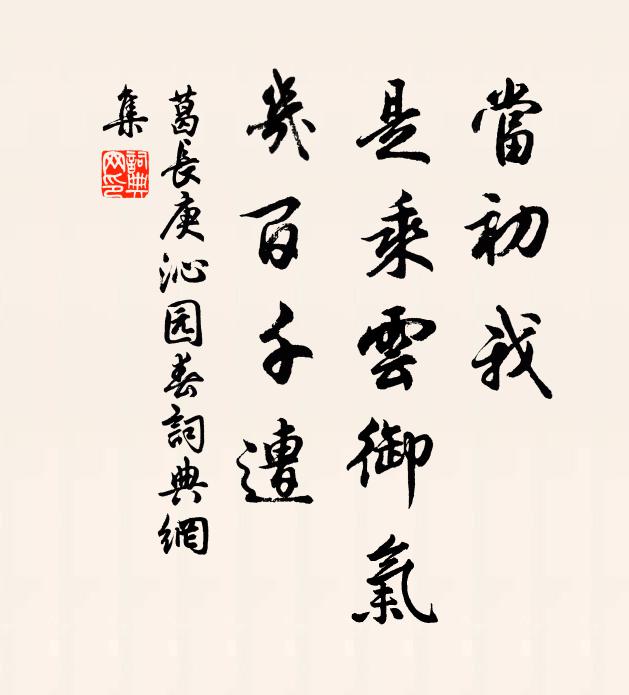 當初我
是乘雲御氣
幾百千遭
葛長庚沁园春詞典網
集
詞典網印